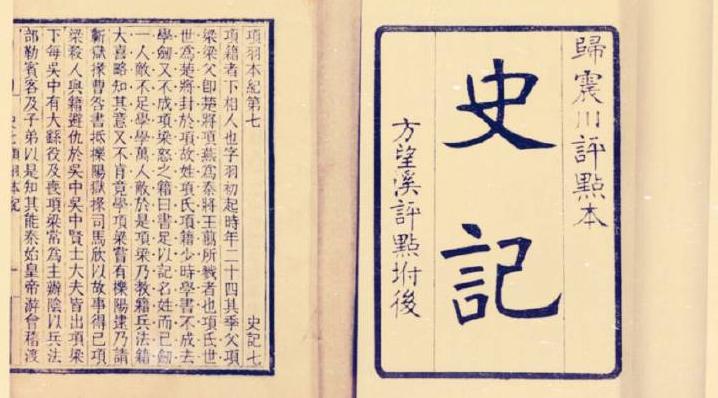 歸震川評點本
史記
方望溪評點坿後
項羽本紀第七 史記七
項籍者下相人也字羽初起時年二十四其季父項
梁梁父卽楚將項燕爲秦將王翦所戮者也項氏世
世爲楚將封於項故姓項氏項籍少時學書不成去
學劍又不成項梁怒之籍曰書足以記名姓而已劍
一人敵不足學學萬人敵於是項梁乃教籍兵法籍
大喜略知其意又不肯竟學項梁嘗有櫟陽逮乃請
蘄獄掾曹咎書抵櫟陽獄掾司馬欣以故事得已項
梁殺人與籍避仇於吳中吳中賢士大夫皆出項梁
下每吳中有大繇役及喪項梁常爲主辦陰以兵法
部勒賓客及子弟以是知其能秦始皇帝游會稽渡
項羽本紀